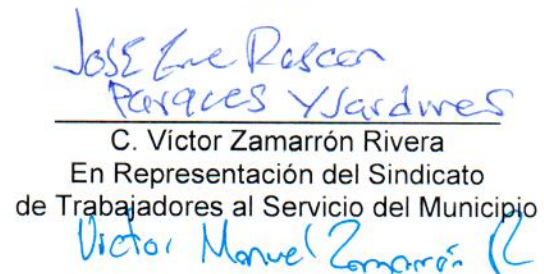 José Rascon
Parques Y Jardines
C. Víctor Zamarrón Rivera
En Representación del Sindicato
de Trabajadores al Servicio del Municipio
Victor Manuel Zamarrón R